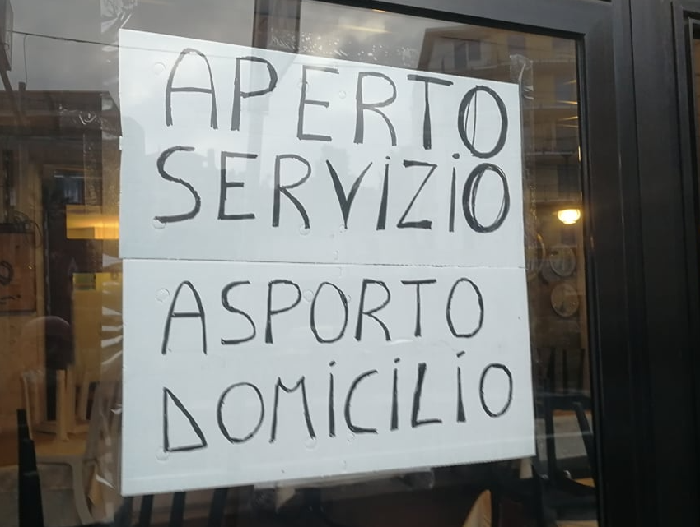 APERTO
SERVIZIO
ASPORTO
DOMICILIO